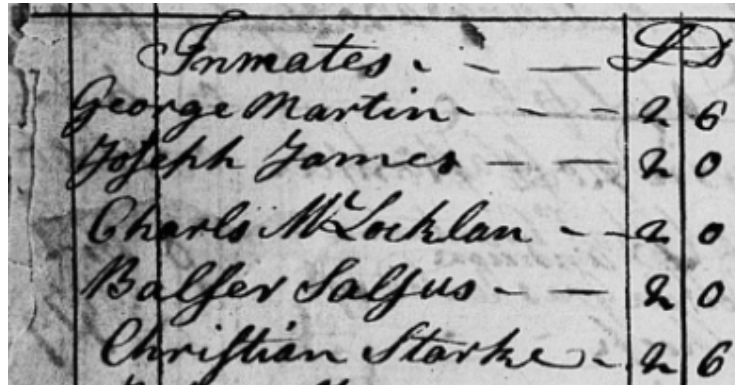 Inmates - - — S D
George Martin - - - 2 6
Joseph James — — 2 0
Charls McLocklan - - 2 0
Balſer Salſus - — 2 0
Chriſtian Starke - 2 6